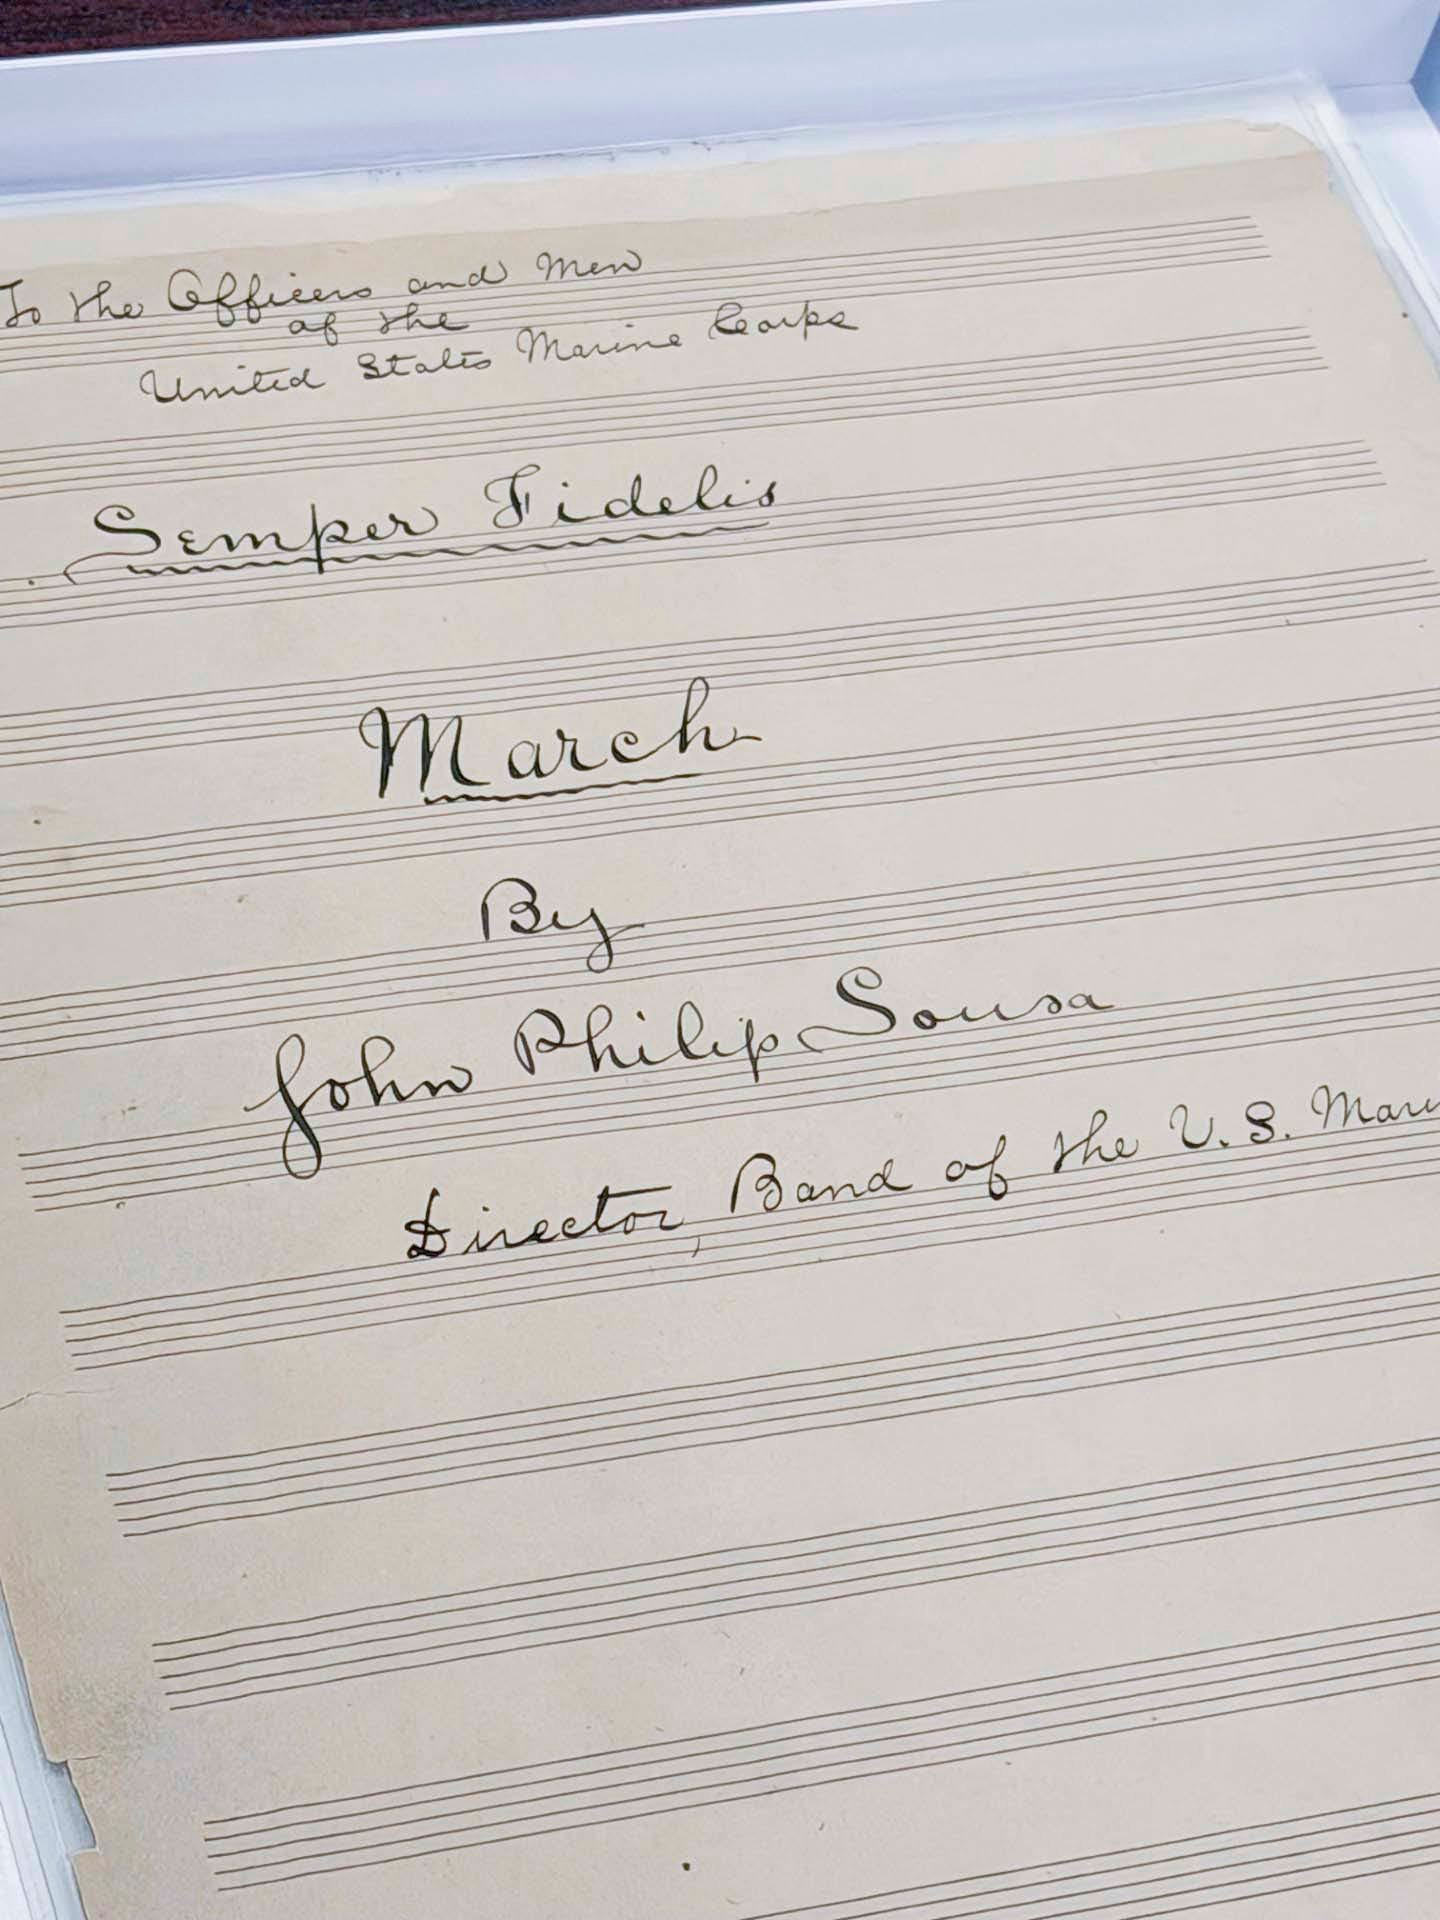 To the Officers and Men
of the
United States Marine Corps
Semper Fidelis
March
By
John Philip Sousa
Director, Band of the U.S.